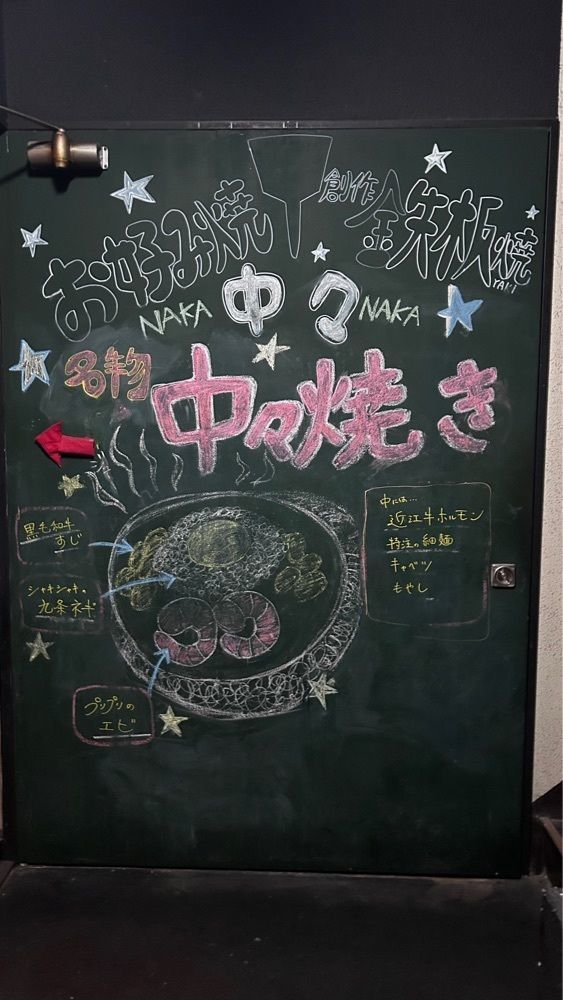 お好み焼 創作 鉄板焼
YAKI
NAKA 中々 NAKA
名物 中々焼き
黒毛和牛
すじ
シャキシャキの
九条ネギ
プリプリの
エビ
中には…
近江牛ホルモン
特注の細麺
キャベツ
もやし